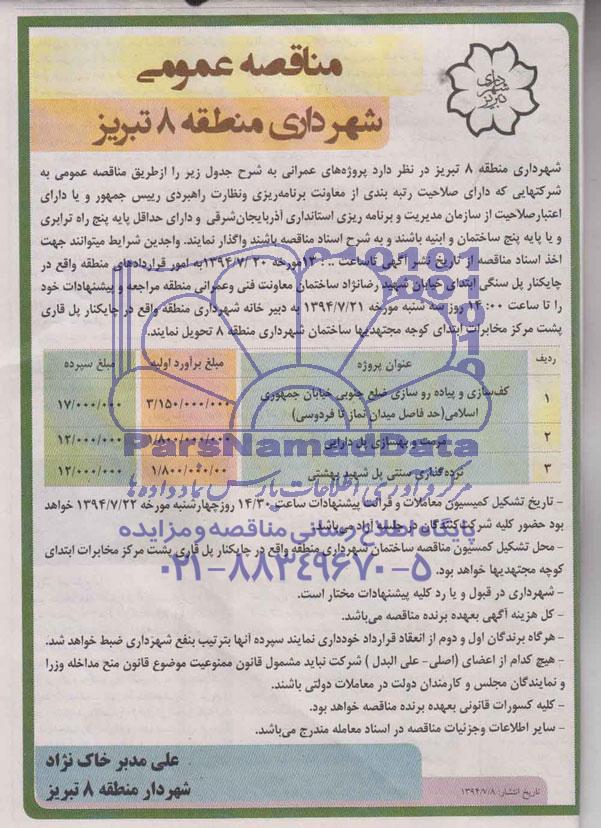 شهرداری
تبریز
مناقصه عمومی
شهرداری منطقه ۸ تبریز
شهرداری منطقه ۸ تبریز در نظر دارد پروژه‌های عمرانی به شرح جدول زیر را ازطریق مناقصه عمومی به
شرکتهایی که دارای صلاحیت رتبه بندی از معاونت برنامه‌ریزی ونظارت راهبردی رییس جمهور و یا دارای
اعتبارصلاحیت از سازمان مدیریت و برنامه ریزی استانداری آذربایجان‌شرقی و دارای حداقل پایه پنج راه ترابری
و یا پایه پنج ساختمان و ابنیه باشند و به شرح اسناد مناقصه باشند واگذار نمایند. واجدین شرایط میتوانند جهت
اخذ اسناد مناقصه از تاریخ نشر آگهی تاساعت ۱۳:۰۰ مورخه ۱۳۹۴/۷/۲۰به امور قراردادهای منطقه واقع در
چایکنار پل سنگی ابتدای خیابان شهید رضانژاد ساختمان معاونت فنی وعمرانی منطقه مراجعه و پیشنهادات خود
را تا ساعت ۱۴:۰۰ روز سه شنبه مورخه ۱۳۹۴/۷/۲۱ به دبیر خانه شهرداری منطقه واقع در چایکنار پل قاری
پشت مرکز مخابرات ابتدای کوچه مجتهدیها ساختمان شهرداری منطقه ۸ تحویل نمایند.
ردیف عنوان پروژه مبلغ برآورد اولیه مبلغ سپرده
۱ کف‌سازی و پیاده رو سازی ضلع جنوبی خیابان جمهوری
اسلامی(حد فاصل میدان نماز تا فردوسی) ۳/۱۵۰/۰۰۰/۰۰۰ ۱۷/۰۰۰/۰۰۰
۲ مرمت و بهسازی پل دارایی ۱/۸۰۰/۰۰۰/۰۰۰ ۱۲/۰۰۰/۰۰۰
۳ نرده‌گذاری سنتی پل شهید بهشتی ۱/۸۰۰/۰۰۰/۰۰۰ ۱۲/۰۰۰/۰۰۰
ParsNamadData
مرکز فرآوری اطلاعات پارس نماد داده‌ها
- تاریخ تشکیل کمیسیون معاملات و قرائت پیشنهادات ساعت ۱۴/۳۰ روزچهارشنبه مورخه ۱۳۹۴/۷/۲۲ خواهد
بود حضور کلیه شرکت‌کنندگان در جلسه آزاد می‌باشد.
پایگاه اطلاع رسانی مناقصه و مزایده
- محل تشکیل کمسیون مناقصه ساختمان شهرداری منطقه واقع در چایکنار پل قاری پشت مرکز مخابرات ابتدای
کوچه مجتهدیها خواهد بود.
۰۲۱-۸۸۳۴۹۶۷۰-۵
- شهرداری در قبول و یا رد کلیه پیشنهادات مختار است.
- کل هزینه آگهی بعهده برنده مناقصه می‌باشد.
- هرگاه برندگان اول و دوم از انعقاد قرارداد خودداری نمایند سپرده آنها بترتیب بنفع شهرداری ضبط خواهد شد.
- هیچ کدام از اعضای (اصلی- علی البدل ) شرکت نباید مشمول قانون ممنوعیت موضوع قانون منع مداخله وزرا
و نمایندگان مجلس و کارمندان دولت در معاملات دولتی باشند.
- کلیه کسورات قانونی بعهده برنده مناقصه خواهد بود.
- سایر اطلاعات وجزئیات مناقصه در اسناد معامله مندرج می‌باشد.
علی مدبر خاک نژاد
شهردار منطقه ۸ تبریز
تاریخ انتشار: ۱۳۹۴/۷/۸